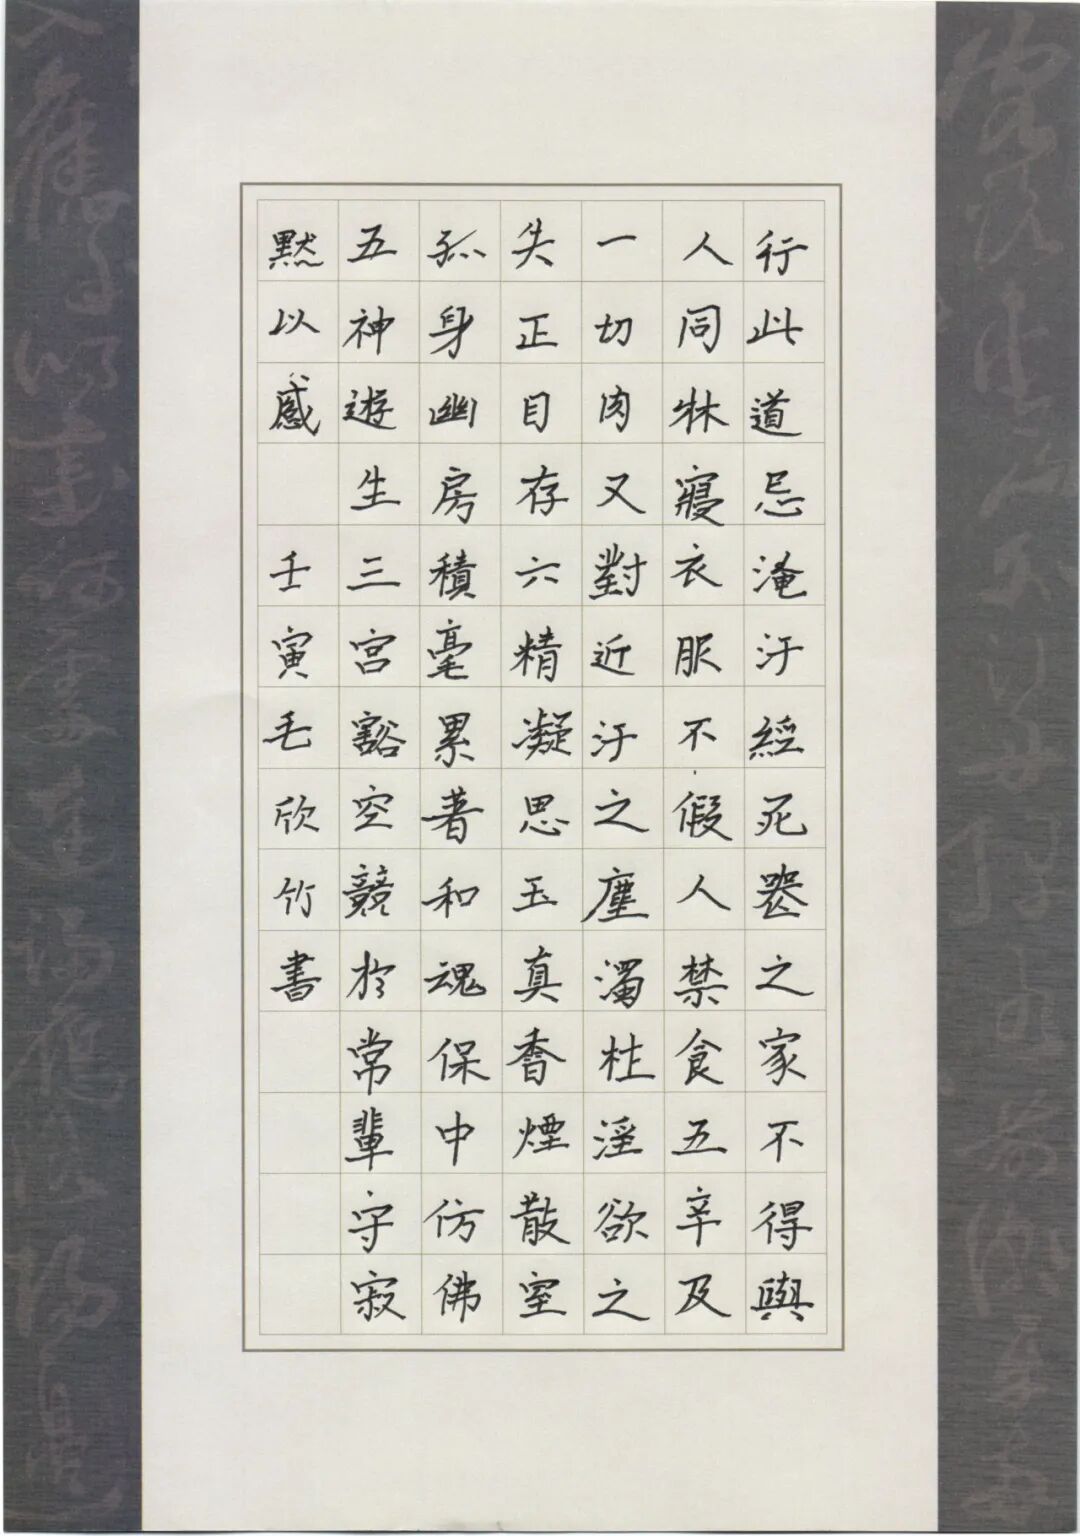 行此道忌淹汙經死器之家不得與
人同牀寢衣服不假人禁食五辛及
一切肉又對近汙之塵濁杜淫欲之
失正目存六精凝思玉真香煙散室
孤身幽房積毫累著和魂保中仿佛
五神遊生三宮豁空競於常輩守寂
默以感 壬寅毛欣竹書